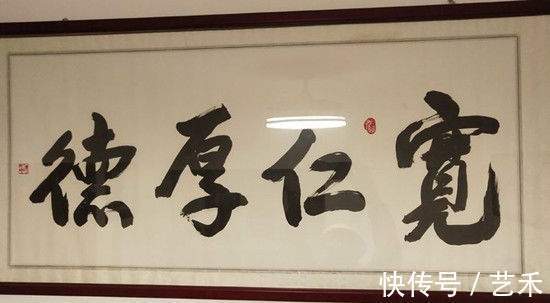 寬仁厚德
快传号 / 艺禾